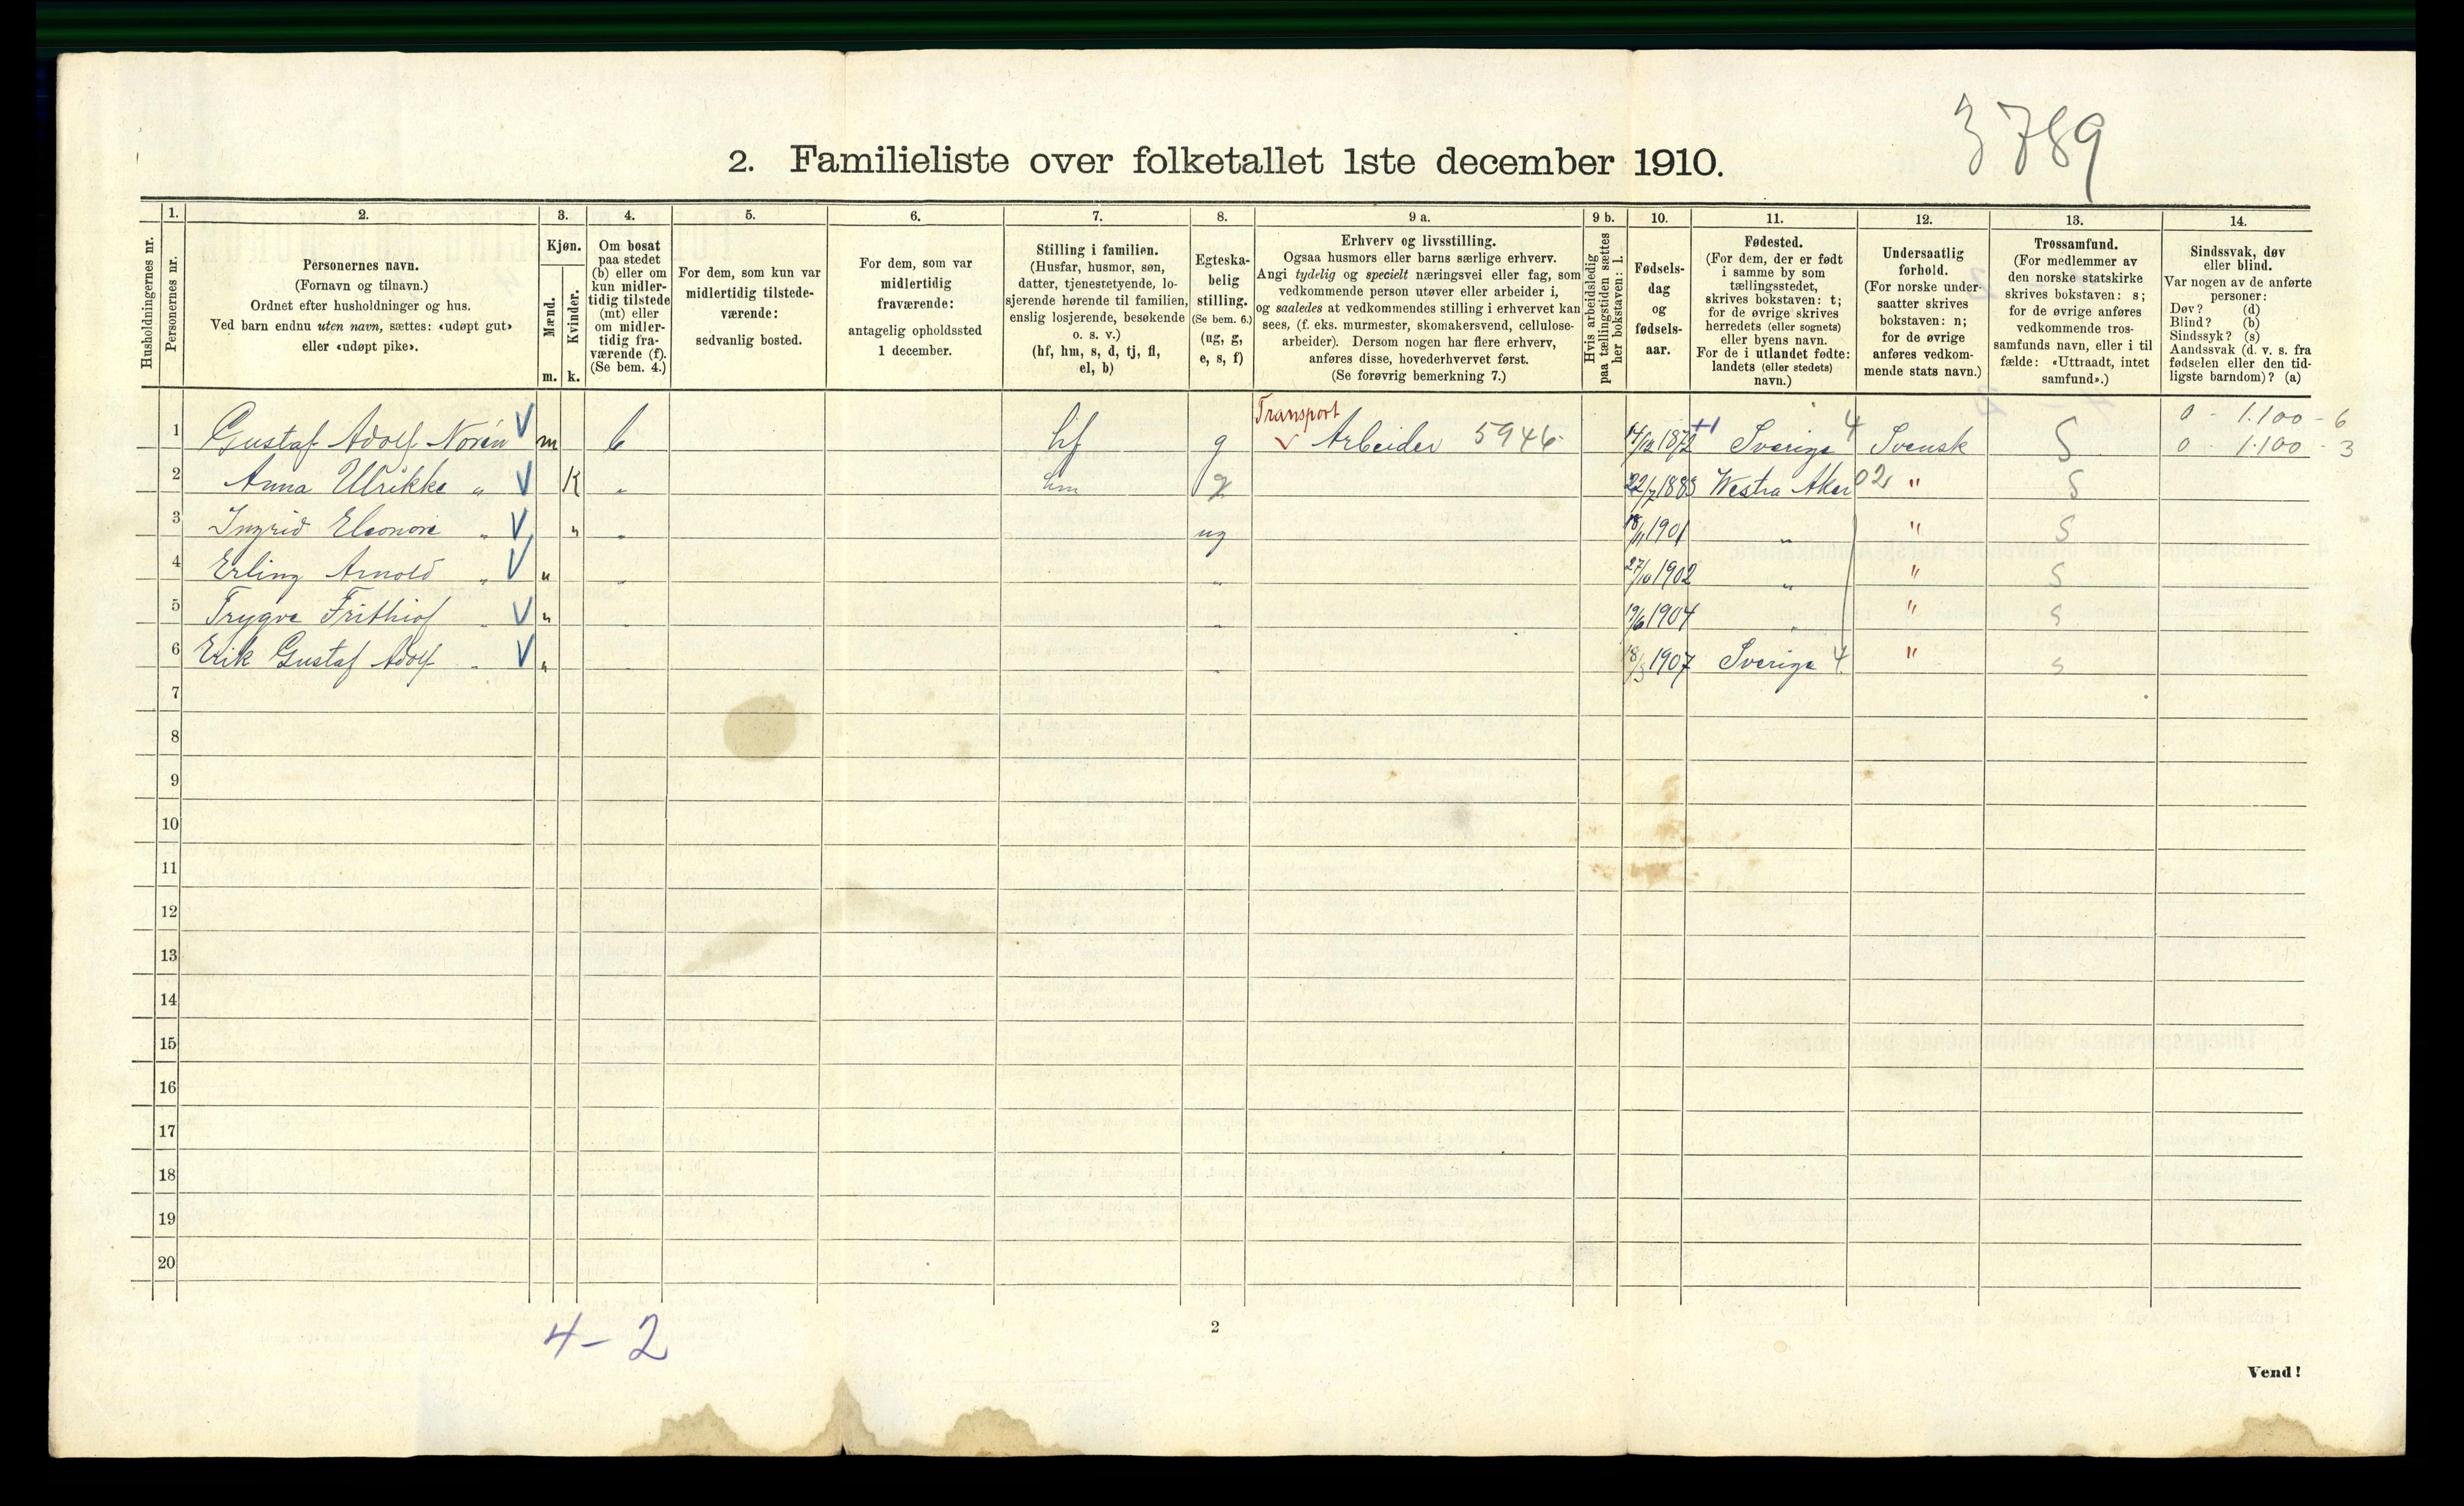 3789
2. Familieliste over folketallet 1ste december 1910.
Husholdningernes nr.
1. Personernes nr.
2. Personernes navn.
(Fornavn og tilnavn.)
Ordnet efter husholdninger og hus.
Ved barn endnu uten navn, sættes: «udøpt gut»
eller «udøpt pike».
3. Kjøn.
Mænd. m.
Kvinder. k.
4. Om bosat
paa stedet
(b) eller om
kun midler-
tidig tilstede
(mt) eller
om midler-
tidig fra-
værende (f).
(Se bem. 4.)
5. For dem, som kun var
midlertidig tilstede-
værende:
sedvanlig bosted.
6. For dem, som var
midlertidig
fraværende:
antagelig opholdssted
1 december.
7. Stilling i familien.
(Husfar, husmor, søn,
datter, tjenestetyende, lo-
sjerende hørende til familien,
enslig losjerende, besøkende
o. s. v.)
(hf, hm, s, d, tj, fl,
el, b)
8. Egteska-
belig
stilling.
(Se bem. 6.)
(ug, g,
e, s, f)
9 a. Erhverv og livsstilling.
Ogsaa husmors eller barns særlige erhverv.
Angi tydelig og specielt næringsvei eller fag, som
vedkommende person utøver eller arbeider i,
og saaledes at vedkommendes stilling i erhvervet kan
sees, (f. eks. murmester, skomakersvend, cellulose-
arbeider). Dersom nogen har flere erhverv,
anføres disse, hovederhvervet først.
(Se forøvrig bemerkning 7.)
9 b. Hvis arbeidsledig
paa tællingstiden sættes
her bokstaven: l.
10. Fødsels-
dag
og
fødsels-
aar.
11. Fødested.
(For dem, der er født
i samme by som
tællingsstedet,
skrives bokstaven: t;
for de øvrige skrives
herredets (eller sognets)
eller byens navn.
For de i utlandet fødte:
landets (eller stedets)
navn.)
12. Undersaatlig
forhold.
(For norske under-
saatter skrives
bokstaven: n;
for de øvrige
anføres vedkom-
mende stats navn.)
13. Trossamfund.
(For medlemmer av
den norske statskirke
skrives bokstaven: s;
for de øvrige anføres
vedkommende tros-
samfunds navn, eller i til
fælde: «Uttraadt, intet
samfund».)
14. Sindssvak, døv
eller blind.
Var nogen av de anførte
personer:
Døv? (d)
Blind? (b)
Sindssyk? (s)
Aandssvak (d. v. s. fra
fødselen eller den tid-
ligste barndom)? (a)
Transport 0 - 1.100 - 6
1 Gustaf Adolf Norén V m b hf g v Arbeider 5946 14/12 1872 +1 Sverige 4 Svensk S 0 - 1.100 - 3
2 Anna Ulrikke " V K " hm g 22/7 1883 Westra Aker 02 " S
3 Ingrid Eleonore " V " " ug 18/11 1901 " " S
4 Erling Arnold " V " " " 27/10 1902 " " S
5 Trygve Frithiof " V " " " 19/6 1904 " " S
6 Erik Gustaf Adolf " V " " " 18/3 1907 Sverige 4 " S
7
8
9
10
11
12
13
14
15
16
17
18
19
20
4-2
2
Vend!